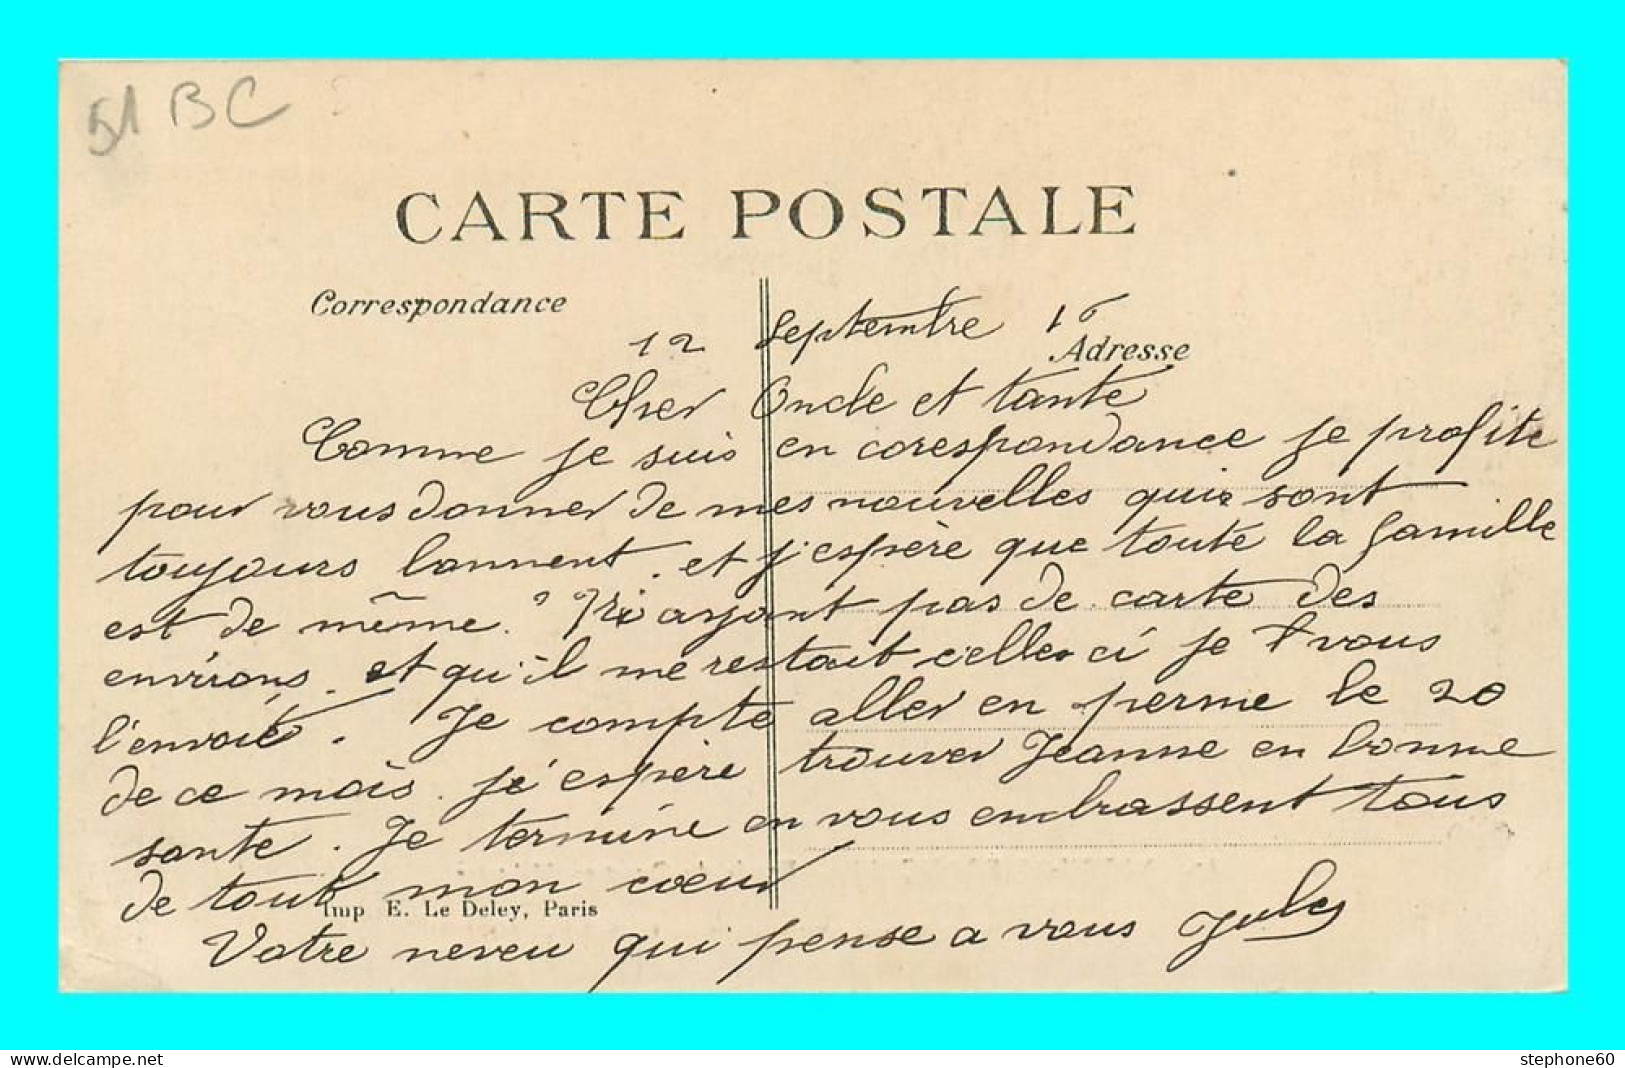 51 BC
CARTE POSTALE
Correspondance
12 Septembre 16
Adresse
Cher Oncle et tante
Comme je suis en corespondance je profite
pour vous donner de mes nouvelles quis sont
toujours bonnent. et j'espère que toute la famille
est de même. N'ayant pas de carte des
environs. et qu'il me restait celle ci je vous
l'envoie. Je compte aller en perme le 20
de ce mois. j'éspère trouver Jeanne en bonne
sante. Je termine en vous embrassent tous
de tout mon coeur
Imp E. Le Deley, Paris
Votre neveu qui pense a vous Jules
www.delcampe.net
stephone60